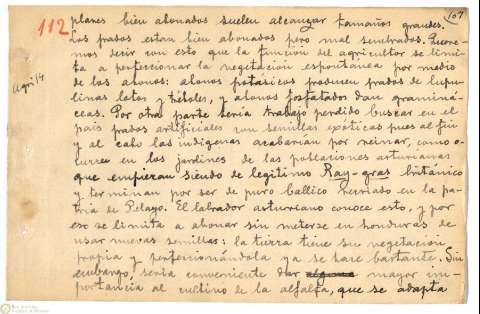 112
107
agri 14
planes bien abonados suelen alcanzar tamaños grandes.
Los prados estan bien abonados pero mal sembrados. Quere-
mos decir con esto que la funcion del agricultor se limi-
ta a perfeccionar la vegetacion espontánea por medio
de los abonos: abonos potásicos producen prados de lupu-
linas lotos y tréboles, y abonos fosfatados dan graminá-
ceas. Por otra parte seria trabajo perdido buscar en el
pais prados artificiales con semillas exóticas pues al fin
y al cabo las indigenas acabarian por reinar, como o-
curre en los jardines de las poblaciones asturianas
que empiezan siendo de legitimo Ray-gras británico
y terminan por ser de puro ballico nacido en la pa-
tria de Pelayo. El labrador asturiano conoce esto, y por
eso se limita a abonar sin meterse en honduras de
usar nuevas semillas: la tierra tiene su vegetacion
propia y perfeccionándola ya se hace bastante. Sin
embargo, seria conveniente dar alguna mayor im-
portancia al cultivo de la alfalfa, que se adapta